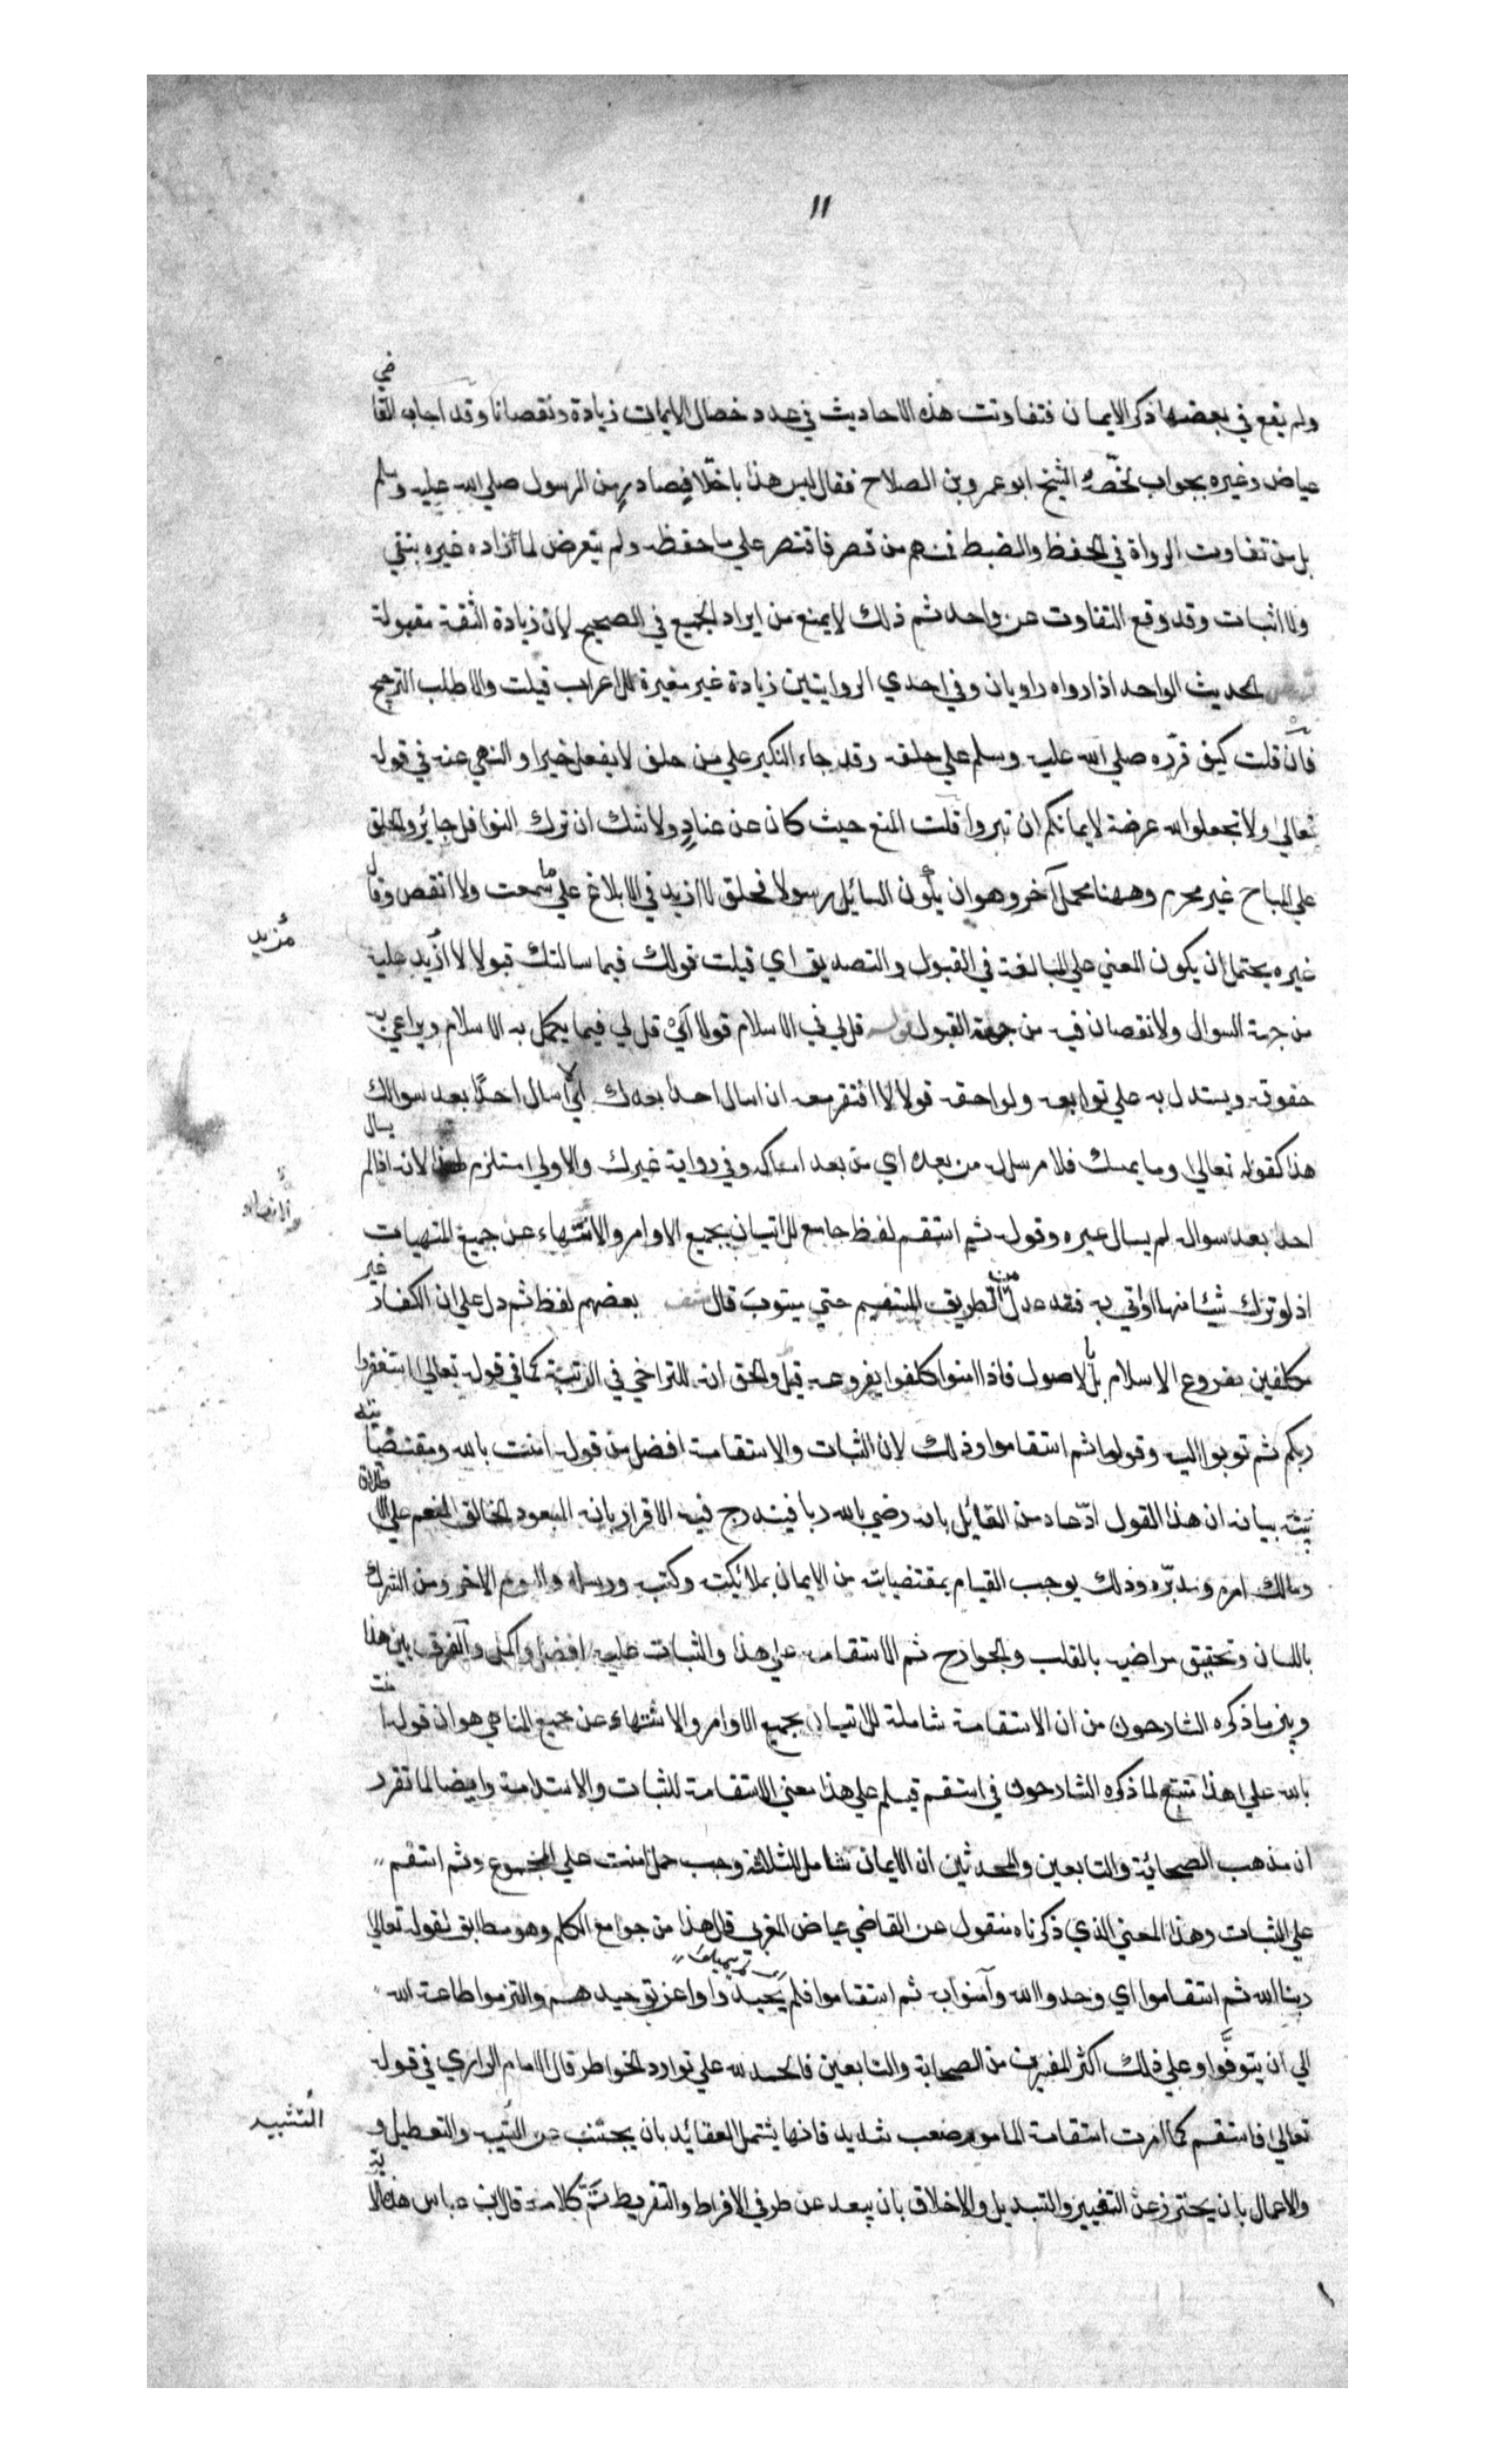 ١١
ولم يقع في بعضها ذكر الايمان فتفاوتت هذه الاحاديث في عدد خصال الايمان زيادة ونقصانا وقد اجاب القاضي
عياض وغيره بجواب لخّصه الشيخ ابو عمرو بن الصلاح فقال ليس هذا باختلاف صادر من الرسول صلي الله عليه وسلم
بل من تفاوت الرواة في الحفظ والضبط فمنهم من قصر فاقتصر علي ما حفظه ولم يتعرض لما زاده غيره بنفي
ولا اثبات وقد وقع التفاوت عن واحد ثم ذلك لا يمنع من ايراد الجميع في الصحيح لان زيادة الثقة مقبولة
الحديث الواحد اذا رواه راويان وفي احدي الروايتين زيادة غير مغيرة للاعراب قبلت والا طلب الترجيح
فان قلت كيف قرّره صلي الله عليه وسلم علي حلفه وقد جاء النكير علي من حلف لا يفعل خيرا والنهي عنه في قوله
تعالي ولا تجعلوا الله عرضة لايمانكم ان تبروا قلت المنع حيث كان عن عنادٍ ولا شك ان ترك النوافل جائز والحلف
علي المباح غير محرم وههنا محمل آخر وهو ان يكون السائل رسولا فحلف لا ازيد في الابلاغ علي ما سمعت ولا انقص وقال
مُزيد
غيره يحتمل ان يكون المعني علي المبالغة في القبول والتصديق اي قبلت قولك فيما سالتك قبولا لا ازيد عليه
من جهة السوال ولا نقصان فيه من جهة القبول قوله قل لي في الاسلام قولا اي قل لي فيما يكمل به الاسلام ويراعي به
حقوقه ويستدل به علي توابعه ولواحقه قولا لا افتقر معه ان اسال احدا بعدك اي لا اسال احدًا بعد سوالك
هذا كقوله تعالي وما يمسك فلا مرسل له من بعده اي من بعد امساكه وفي رواية غيرك والاولي مستلزم لهذا لانه اذا لم يسال
احدا بعد سواله لم يسال غيره وقوله ثم استقم لفظ جامع للاتيان بجميع الاوامر والانتهاء عن جميع المنهيات
اذ لو ترك شيئا منها او اتي به فقد عدل من الطريق المستقيم حتي يتوبَ قال بعضهم لفظ ثم دل علي ان الكفار غير
مكلفين بفروع الاسلام بل بالاصول فاذا امنوا كلفوا بفروعه قيل والحق انه للتراخي في الرتبة كما في قوله تعالي استغفروا
ربكم ثم توبوا اليه وقولوا ثم استقاموا وذلك لان الثبات والاستقامة افضل من قوله امنت بالله ومقتضياته
بيانه ان هذا القول ادّعاء من القائل بانه رضي بالله ربا فيندرج فيه الاقرار بانه المعبود الخالق المنعم علي الاطلاق
ومالك امره ومدبّره وذلك يوجب القيام بمقتضياته من الايمان بملائكته وكتبه ورسله واليوم الاخر ومن الشرك
باللسان وتحقيق مراضيه بالقلب والجوارح ثم الاستقامة علي هذا والثبات عليه افضل واكمل والفرق بين هذا
وبين ما ذكره الشارحون من ان الاستقامة شاملة للاتيان بجميع الاوامر والانتهاء عن جميع المناهي هو ان قوله امنت
بالله علي هذا متبع لما ذكره الشارحون في استقم فيسلم علي هذا معني الاستقامة للثبات والاستدامة وايضا لما تقرر
ان مذهب الصحابة والتابعين والمحدثين ان الايمان شامل للثلاثة وجب حمل امنت علي المجموع وثم استقم
علي الثبات وهذا المعني الذي ذكرناه منقول عن القاضي عياض المغربي قال هذا من جوامع الكلم وهو مطابق لقوله تعالي
ربنا الله ثم استقاموا اي وحدوا الله وآمنوا به ثم استقاموا فلم يحيدوا عن توحيدهم والتزموا طاعة الله
الي ان يتوفّوا وعلي ذلك اكثر المفسرين من الصحابة والتابعين فالحمد لله علي توارد الخواطر قال الامام الرازي في قوله
التشبيه
تعالي فاستقم كما امرت استقامة المامور صعب شديد فانها يشتمل العقائد بان يجتنب عن التشبيه والتعطيل و
والاعمال بان يحترز عن التغيير والتبديل والاخلاق بان يبعد عن طرفي الافراط والتفريط تَمَّ كلامه قال ابن عباس